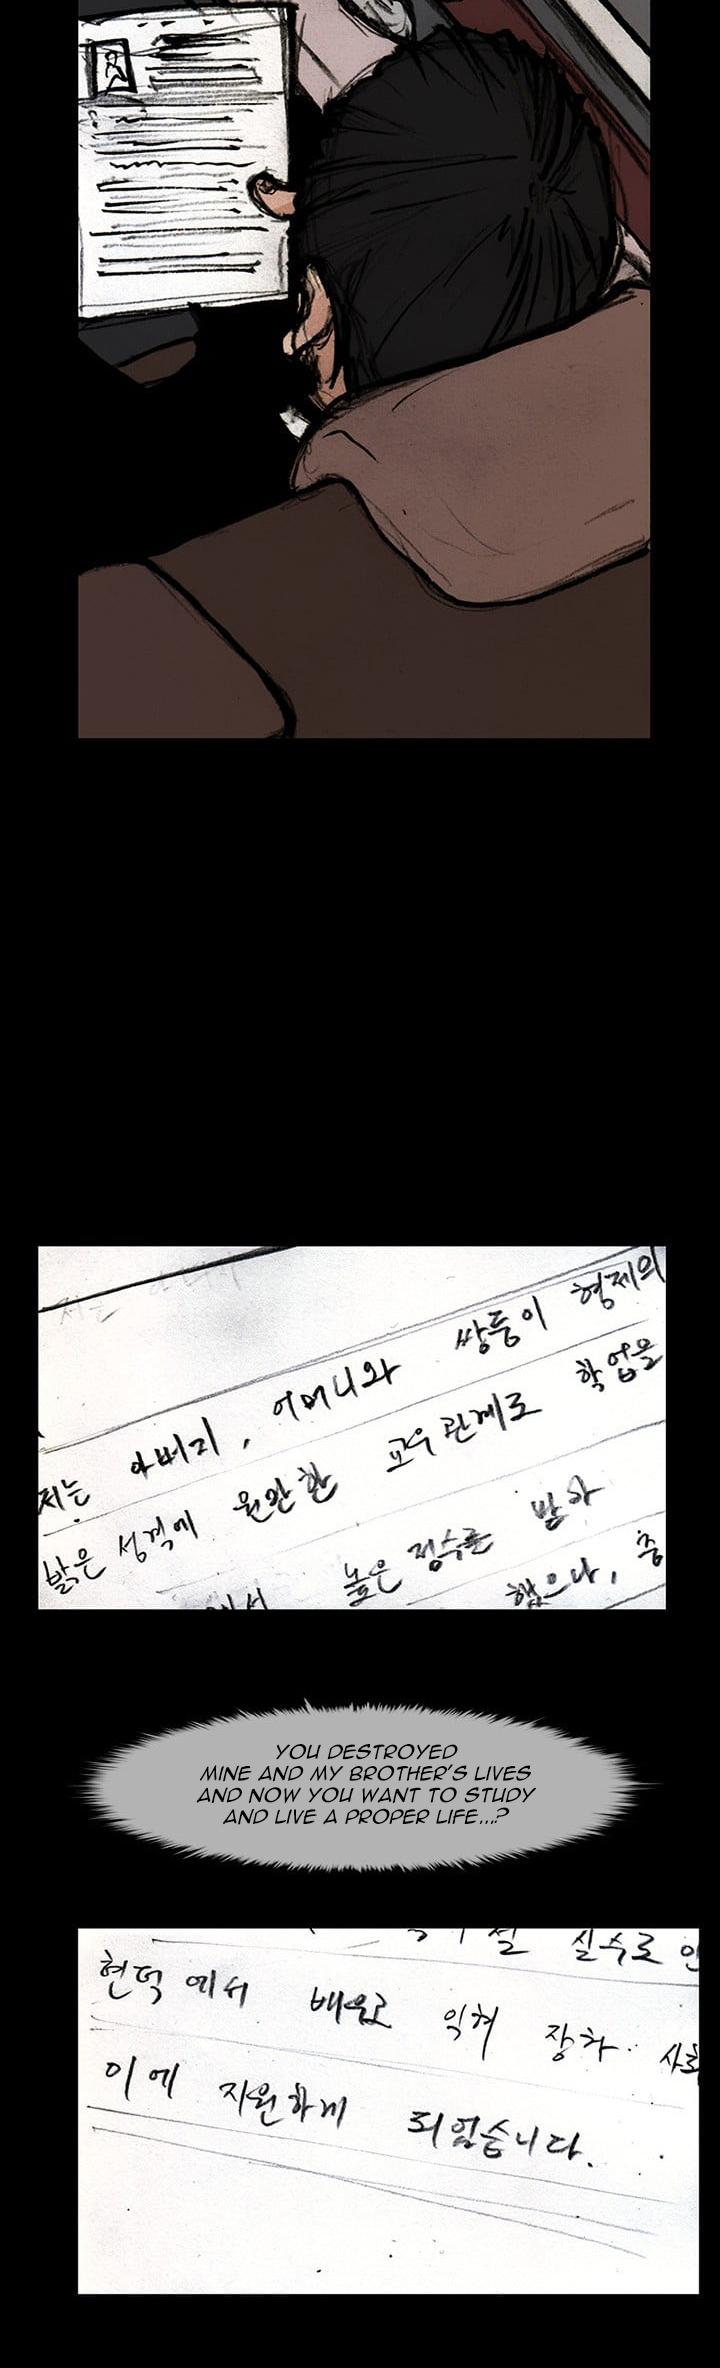 저는 아버지, 어머니와 쌍둥이 형제의
밝은 성격에 원만한 교우관계로 학업을
에서 높은 점수를 받아
했으나, 중
YOU DESTROYED
MINE AND MY BROTHER'S LIVES
AND NOW YOU WANT TO STUDY
AND LIVE A PROPER LIFE...?
실수로 인
현덕에서 배우고 익혀 장차 사회
이에 지원하게 되었습니다.